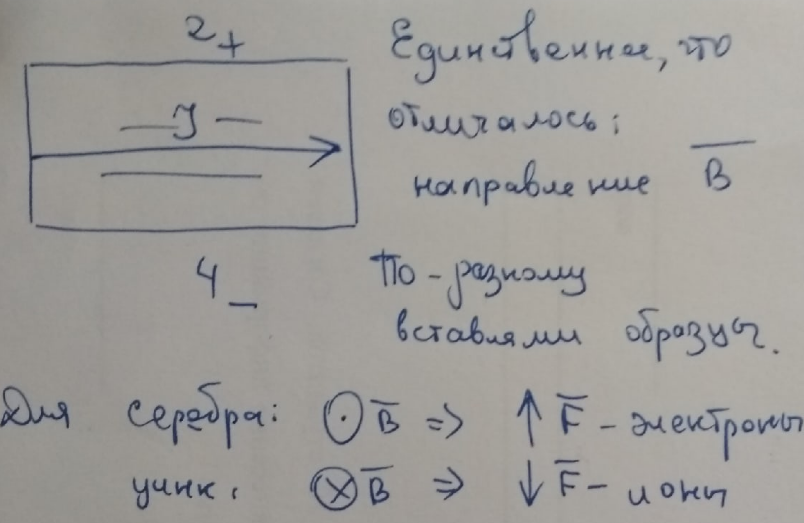 2 +
Единственное, что
отличалось:
J
направление B
4 -
По-разному
вставляли образцы.
Для серебра: ⊙ B => ↑ F - электроны
цинк: ⊗ B => ↓ F - ионы